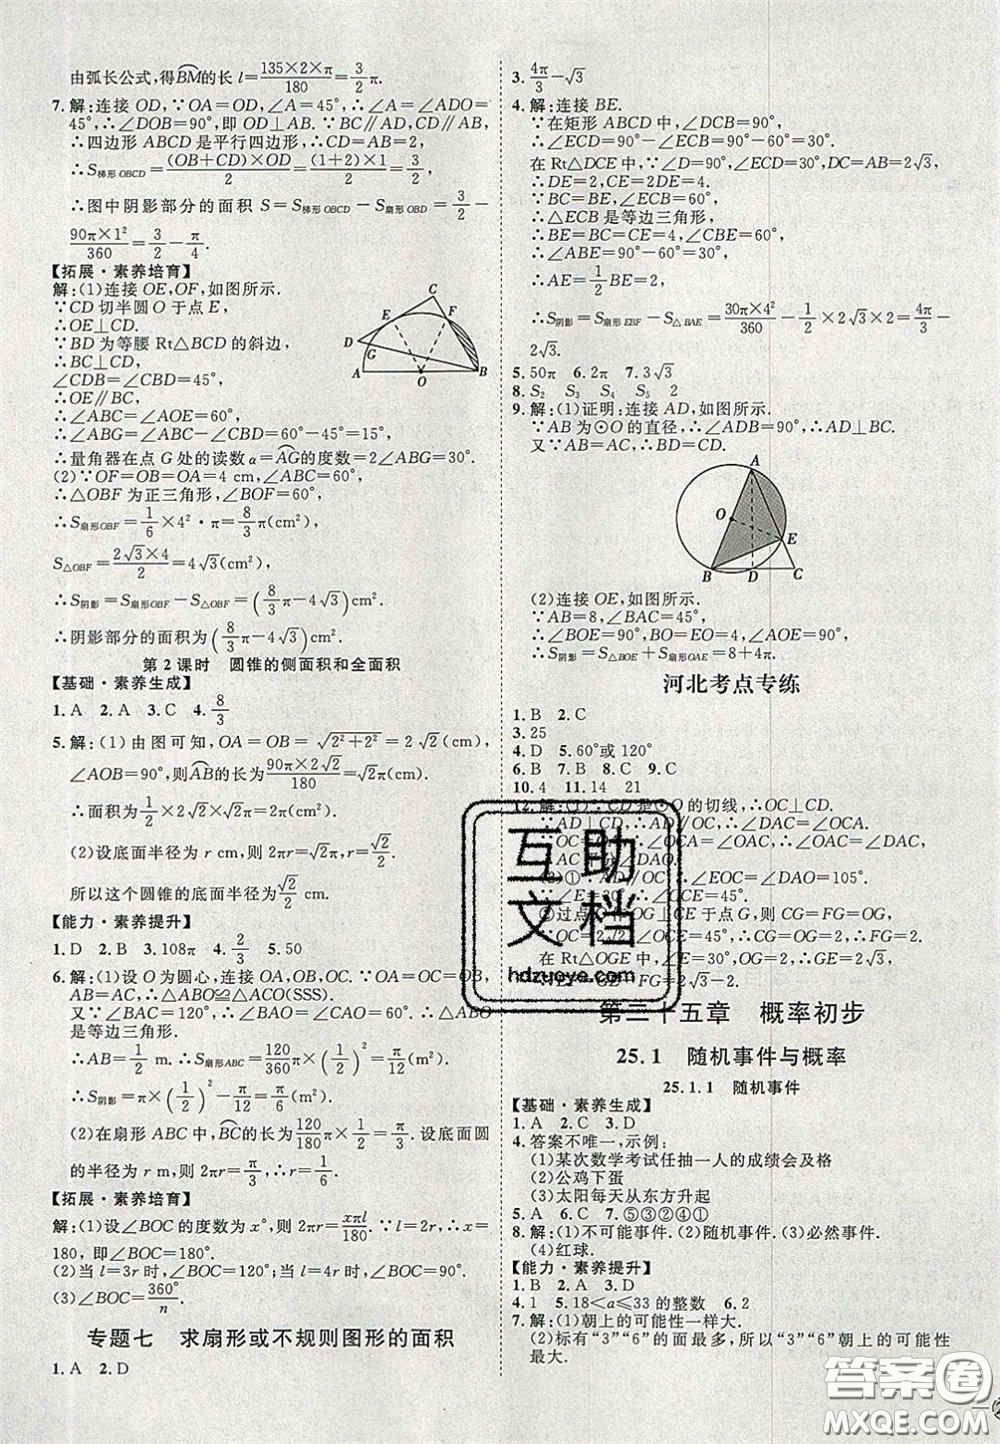 由弧长公式,得BM的长 l=135×2×π/180=3/2π.
7.解:连接 OD,∵OA=OD,∠A=45°,∴∠ADO=∠A=
45°,∴∠DOB=90°,即 OD⊥AB.∵BC∥AD,CD∥AB,
∴四边形 ABCD 是平行四边形,∴CD=AB=2,
∴S梯形OBCD=(OB+CD)×OD/2=(1+2)×1/2=3/2,
∴图中阴影部分的面积 S=S梯形OBCD-S扇形OBD=3/2-
90π×1²/360=3/2-π/4.
【拓展·素养培育】
解:(1)连接 OE,OF,如图所示.
∵CD 切半圆 O 于点 E,
∴OE⊥CD.
∵BD 为等腰 Rt△BCD 的斜边,
∴BC⊥CD,
∠CDB=∠CBD=45°,
∴OE∥BC,
∴∠ABC=∠AOE=60°,
∴∠ABG=∠ABC-∠CBD=60°-45°=15°,
∴量角器在点 G 处的读数 α=AG的度数=2∠ABG=30°.
(2)∵OF=OB=OA=4 cm,∠ABC=60°,
∴△OBF 为正三角形,∠BOF=60°,
∴S扇形OBF=1/6×4²·π=8/3π(cm²),
S△OBF=2√3×4/2=4√3(cm²),
∴S阴影=S扇形OBF-S△OBF=(8/3π-4√3)(cm²),
∴阴影部分的面积为(8/3π-4√3)cm².
第 2 课时 圆锥的侧面积和全面积
【基础·素养生成】
1.A 2.A 3.C 4.8/3
5.解:(1)由图可知,OA=OB=√2²+2²=2√2(cm),
∠AOB=90°,则AB的长为90π×2√2/180=√2π(cm).
∴面积为1/2×2√2×√2π=2π(cm²).
(2)设底面半径为 r cm,则2πr=√2π,∴r=√2/2.
所以这个圆锥的底面半径为√2/2 cm.
【能力·素养提升】
1.D 2.B 3.108π 4.2/3 5.50
6.解:(1)设 O 为圆心,连接 OA,OB,OC.∵OA=OC=OB,
AB=AC,∴△ABO≌△ACO(SSS).
又∵∠BAC=120°,∴∠BAO=∠CAO=60°,∴△ABO
是等边三角形,
∴AB=1/2 m.∴S扇形ABC=120/360π×(1/2)²=π/12(m²),
∴S阴影=π×(1/2)²-π/12=π/6(m²).
(2)在扇形 ABC 中,BC的长为120/180π×1/2=π/3.设底面圆
的半径为 r m,则 2πr=π/3,∴r=1/6.
【拓展·素养培育】
解:(1)设∠BOC 的度数为 x°,则 2πr=xπl/180.∵l=2r,∴x=
180,即∠BOC=180°.
(2)当 l=3r 时,∠BOC=120°;当 l=4r 时,∠BOC=90°.
(3)∠BOC=360°/n.
专题七 求扇形或不规则图形的面积
1.A 2.D
3.4π/3-√3
4.解:连接 BE.
∵在矩形 ABCD 中,∠DCB=90°,
∴∠ECD=90°-∠ECB=30°.
在 Rt△DCE 中,∵∠D=90°,∠ECD=30°,DC=AB=2√3,
∴DE=2,CE=4.
∵BC=BE,∠ECB=60°,
∴△ECB 是等边三角形,
∴BE=BC=CE=4,∠EBC=60°,
∴∠ABE=90°-60°=30°,
∴AE=1/2BE=2,
∴S阴影=S扇形EBF-S△BAE=30π×4²/360-1/2×2√3×2=4π/3-
2√3.
5.50π 6.2π 7.3√3
8.S₂ S₃ S₅ 2
9.解:(1)证明:连接 AD,如图所示.
∵AB 为⊙O 的直径,∴∠ADB=90°,∴AD⊥BC.
又∵AB=AC,∴BD=CD.
(2)连接 OE,如图所示.
∵AB=8,∠BAC=45°,
∴∠BOE=90°,BO=EO=4,∠AOE=90°,
∴S阴影=S△BOE+S扇形OAE=8+4π.
河北考点专练
1.B 2.C
3.25
4.D 5.60°或 120°
6.B 7.B 8.C 9.C
10.4 11.14 21
12.解:(1)∵CD 是⊙O 的切线,∴OC⊥CD.
∵AD⊥CD,∴AD∥OC,∴∠DAC=∠OCA.
∵OC=OA,∴∠OCA=∠OAC,∴∠OAC=∠DAC,
∴AC平分∠DAO.
(2)①∵AD∥OC,∴∠EOC=∠DAO=105°.
∵∠E=30°,∴∠OCE=45°.
②过点O作OG⊥CE于点G,∴CG=FG=OG,
∵OC=2√2,∠OCE=45°,∴CG=OG=2,∴FG=2.
在 Rt△OGE 中,∵∠E=30°,∴GE=2√3,
∴EF=GE-FG=2√3-2.
第二十五章 概率初步
25.1 随机事件与概率
25.1.1 随机事件
【基础·素养生成】
1.A 2.C 3.D
4.答案不唯一,示例:
(1)某次数学考试任抽一人的成绩会及格
(2)公鸡下蛋
(3)太阳每天从东方升起
5.A 6.C 7.⑤③②④①
8.解:(1)不可能事件.(2)随机事件.(3)必然事件.
(4)红球.
【能力·素养提升】
1.B 2.A 3.D
4.1 5.18<a≤33的整数 6.2
7.解:(1)朝上的可能性一样大.
(2)标有“3”“6”的面最多,所以“3”“6”朝上的可能性
最大.
互助
文档
hdzuoye.com
答案圈
MXQE.COM